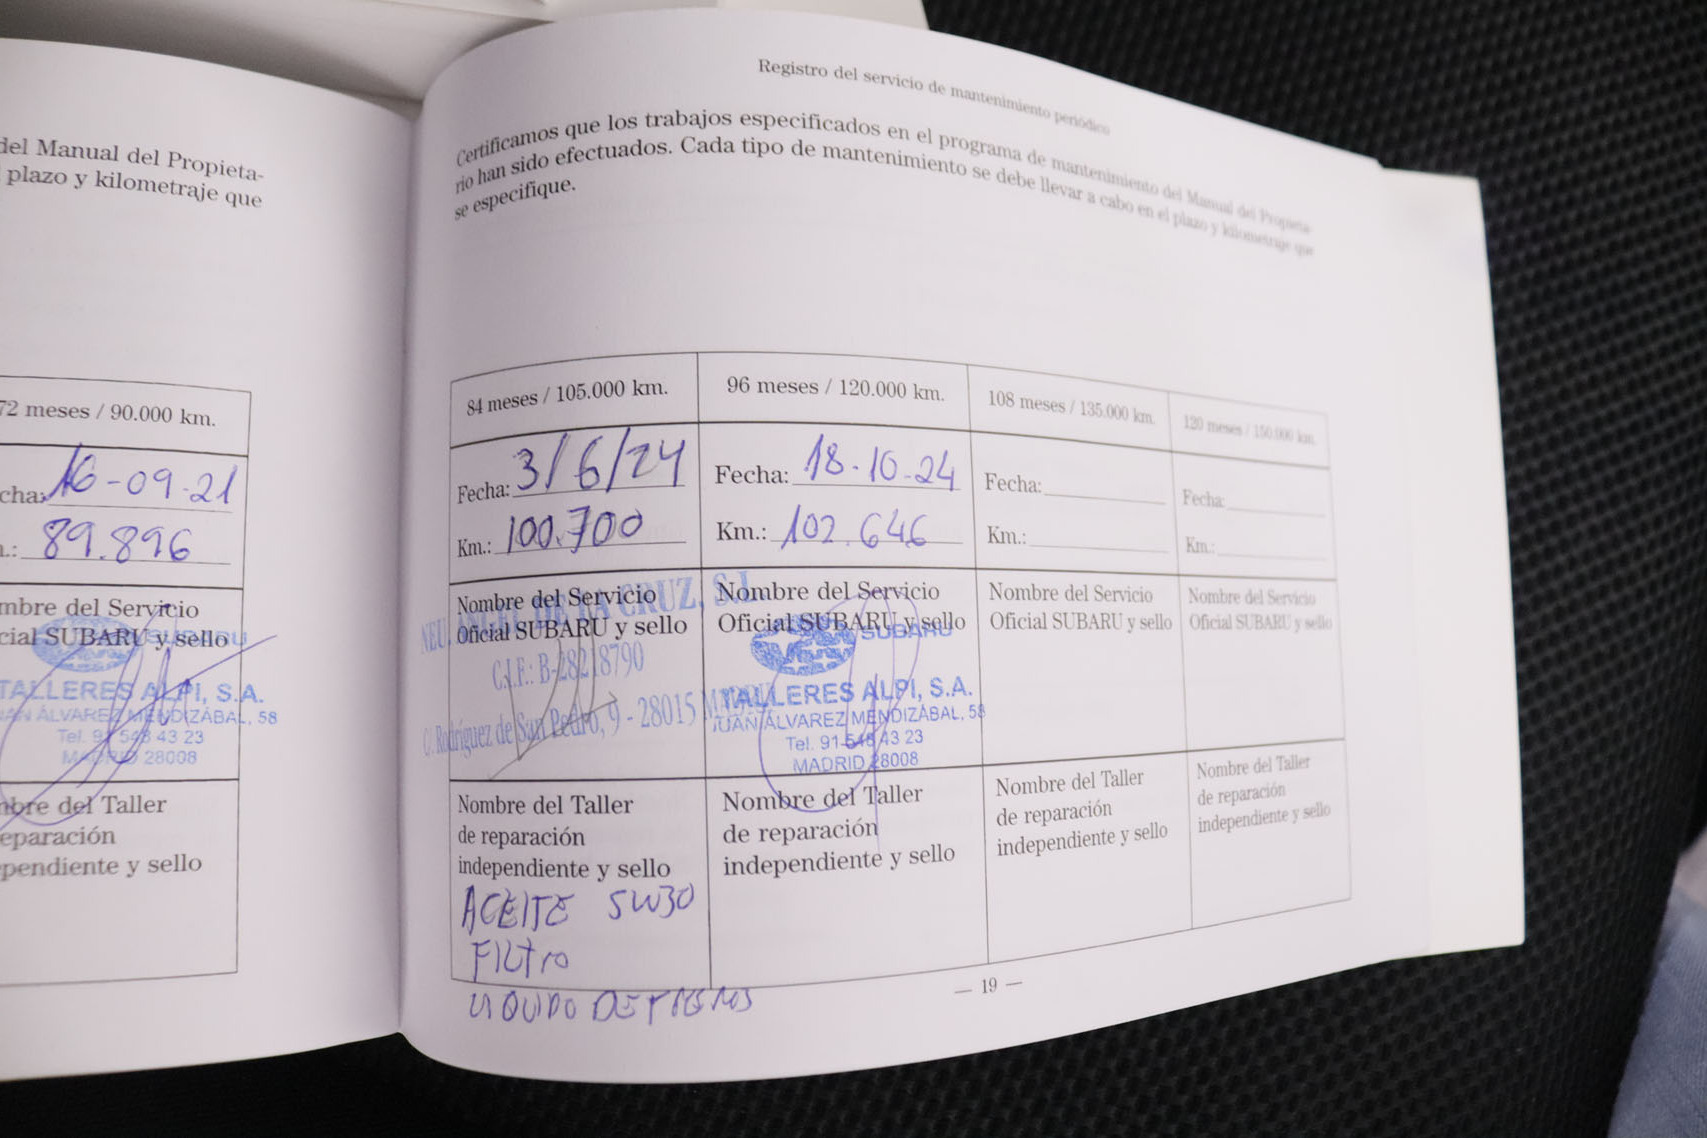 del Manual del Propieta-
plazo y kilometraje que
72 meses / 90.000 km.
cha: 16-09-21
.: 89.896
mbre del Servicio
cial SUBARU y sello
SUBARU
TALLERES ALPI, S.A.
JUAN ÁLVAREZ MENDIZÁBAL, 58
Tel. 91 548 43 23
MADRID 28008
bre del Taller
eparación
pendiente y sello
Registro del servicio de mantenimiento periódico
Certificamos que los trabajos especificados en el programa de mantenimiento del Manual del Propieta-
rio han sido efectuados. Cada tipo de mantenimiento se debe llevar a cabo en el plazo y kilometraje que
se especifique.
84 meses / 105.000 km.
Fecha: 3/6/24
Km.: 100.700
Nombre del Servicio
Oficial SUBARU y sello
DE LA CRUZ, S.L.
C.I.F.: B-28218790
C/. Rodríguez de San Pedro, 9 - 28015 MADRID
Nombre del Taller
de reparación
independiente y sello
ACEITE 5W30
FILTRO
LIQUIDO DE FRENOS
96 meses / 120.000 km.
Fecha: 18-10-24
Km.: 102.646
Nombre del Servicio
Oficial SUBARU y sello
SUBARU
TALLERES ALPI, S.A.
JUAN ÁLVAREZ MENDIZÁBAL, 58
Tel. 91 548 43 23
MADRID 28008
Nombre del Taller
de reparación
independiente y sello
108 meses / 135.000 km.
Fecha:
Km.:
Nombre del Servicio
Oficial SUBARU y sello
Nombre del Taller
de reparación
independiente y sello
120 meses / 150.000 km.
Fecha:
Km.:
Nombre del Servicio
Oficial SUBARU y sello
Nombre del Taller
de reparación
independiente y sello
— 19 —